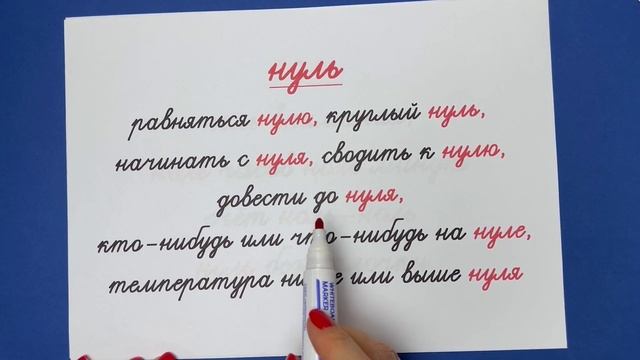 нуль
равняться нулю, круглый нуль,
начинать с нуля, сводить к нулю,
довести до нуля,
кто-нибудь или что-нибудь на нуле,
температура ниже или выше нуля
WHITEBOARD
MARKER